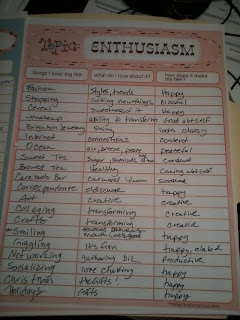 Topic: ENTHUSIASM
things I love/big like
what do I love about it?
how does it make me feel?
Fashion styles, trends Happy
Shopping finding new things Blissful
Cereal Sweetness of it Happy
makeup ability to transform Good abt self
Brighton Jewelry Shiny
Internet connections Content
Ocean air, breeze, peace peaceful
Sweet Tea Sugar content
Healthy Caring abt self
Caramel Yumm
Correspondence oldscourse happy
Art creative creative
Collaging transforming creative
Crafts transforming creative
Smiling happy
Giggling It's fun happy, elated
Networking gathering biz Productive
Socializing love chatting happy
Christmas the Gifts! happy
Holidays Gifts happy